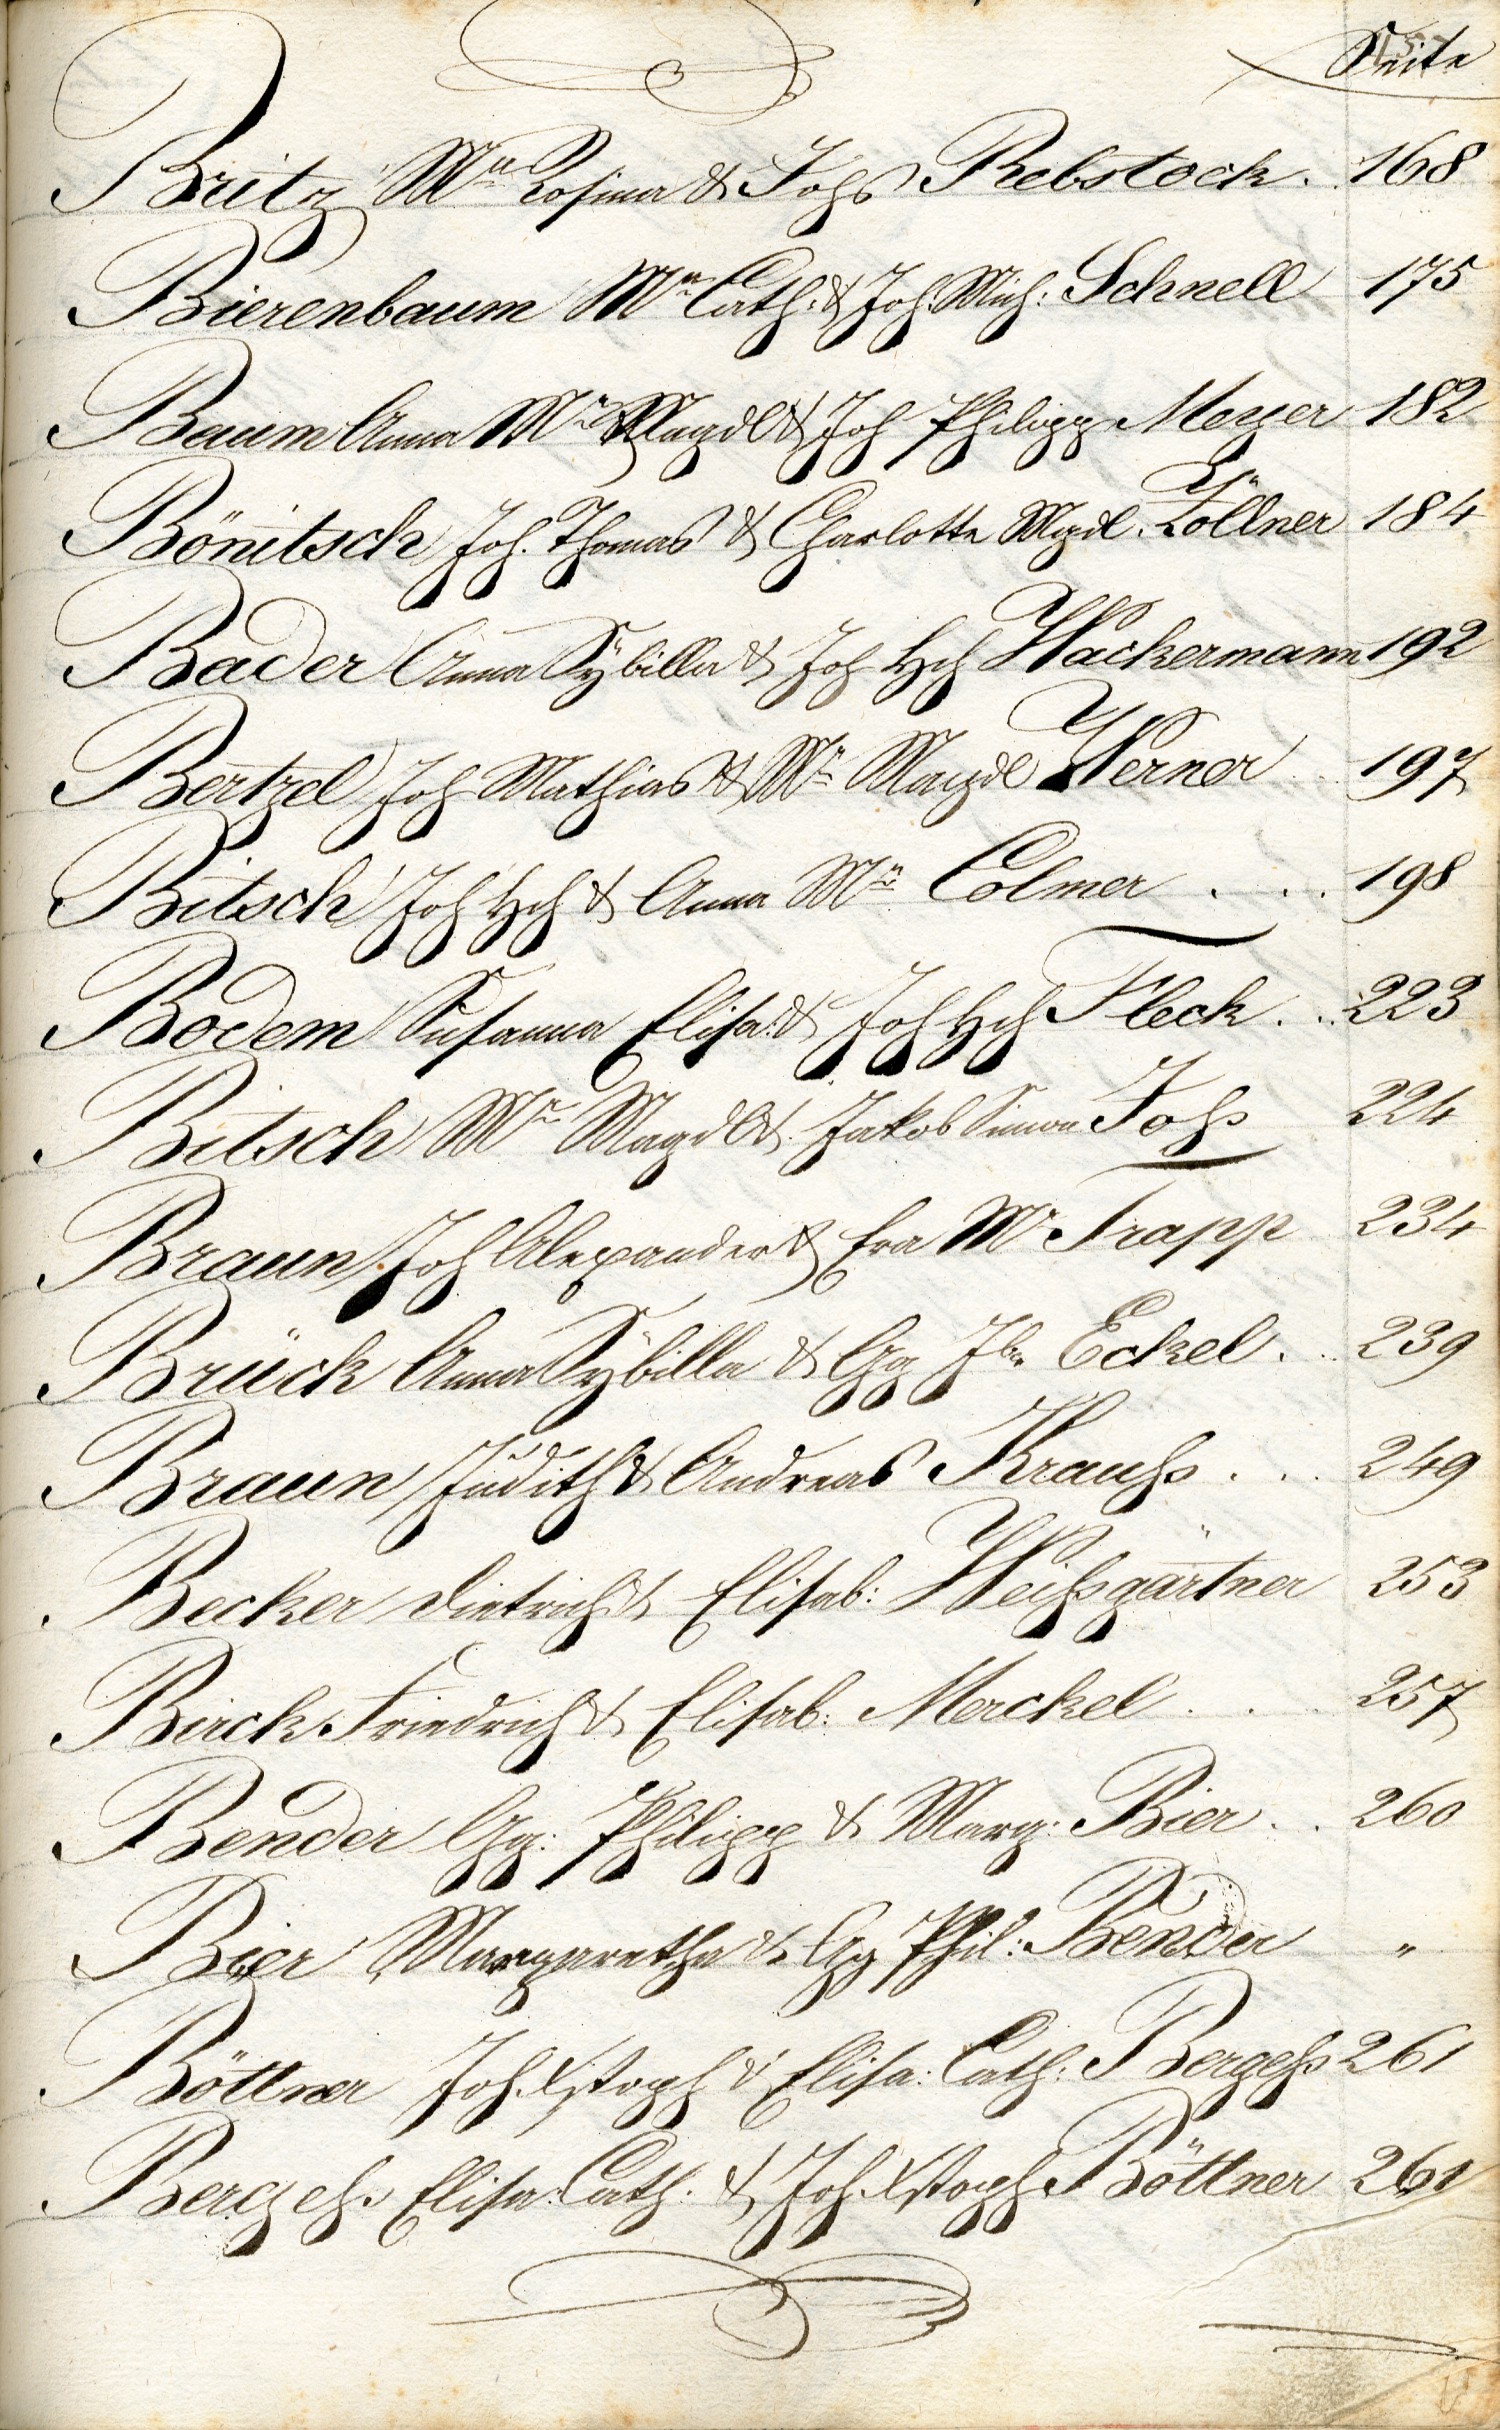 Seite
Britz Mra Rosina & Johs Rebstock. 168
Bierenbaum Mra Cath: & Joh. Mich: Schnell 175
Baum Anna Mra Magdl & Joh Philipp Meyer 182
Bönitsch Joh. Thomas & Charlotte Mgdl. Zöllner 184
Bader Anna Sybilla & Joh Hch Wackermann 192
Bertzel Joh Mathias & Mra Magdl Werner 197
Bitsch Joh Hch & Anna Mra Colmer . . . 198
Bodem Susanna Elisa: & Joh Hch Fleck . . 223
Bitsch Mra Magdl & Jakob Simon Johs 224
Braun Joh Alexander & Eva Mra Trapp 234
Brück Anna Sybilla & Gg Eckel . . 239
Braun Judith & Andreas Krauß . . . 249
Becker Dietrich & Elisab: Weißgärtner 253
Birck Friedrich & Elisab: Merckel . . . 257
Bender Gg: Philipp & Marg: Bier . . 260
Bier Margaretha & Gg Phil: Bender "
Böttner Joh. Xstoph & Elisa: Cath: Bergeß 261
Bergeß Elisa: Cath: & Joh. Xstoph Böttner 261